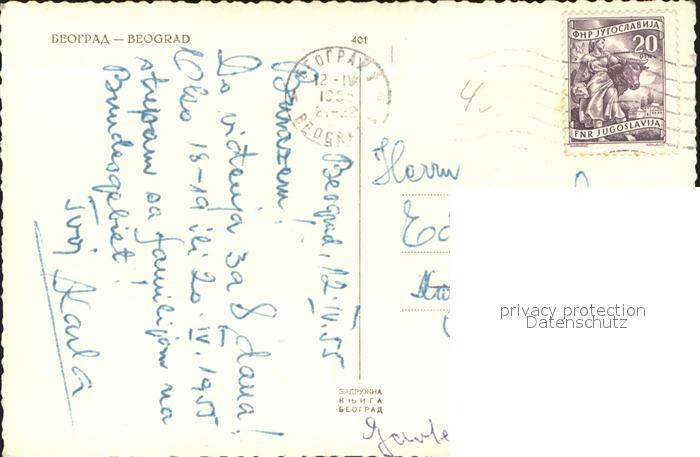 БЕОГРАД — BEOGRAD
401
БЕОГРАД
12-IV
1955
21-22
BEOGRAD
ФНР ЈУГОСЛАВИЈА
20
FNR JUGOSLAVIJA
4.-
Beograd, 12. IV. 55
Do viđenja za 8 dana!
Oko 18-19 ili 20. IV. 1955
stupam sa familijom na
Bundesgebiet!
Tvoj Karla
Herrn
ЗАДРУЖНА
КЊИГА
БЕОГРАД
privacy protection
Datenschutz